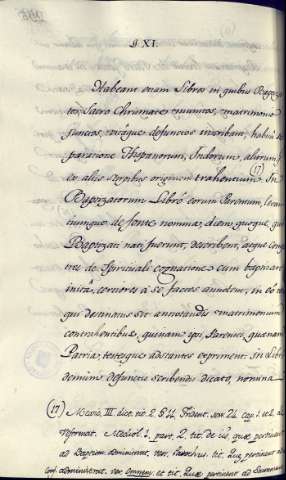 § XI.
Habeant etiam Libros in quibus Baptiza-
tos, Sacro Chrismate inunctos, matrimonio
junctos, vitâque defunctos inscribant, habitâ se-
paratione Hispanorum, Indorum, aliorumq.
ex aliis stirpibus originem trahentium (17) In
Baptizatorum Libró eorum Parentum, levan-
tiumque de fonte nomina, diem quoque qua
Baptizati nati fuerint, describent, atque con
tres de Spirituali cognatione cum baptizato
initâ, certiores á se factos annotent, in eó vero
qui destinatus sit annotandis matrimonium
contrahentibus, quinam ipsi, Parentes, quænam
Patria, testesque adstantes exprimент, in libro
demum defunctis scribendis dicato, nomina
(17) Mexic. III. dict. tit. 2. § 4. Trident. ses. 24. cap. 1. et 2. de
reformat. Mediol. 1. part. 2. tit. de iis quæ pertinent
ad Baptism. administrat. ver. Parochus. tit. Quæ pertinent ad
administrat. ver. et tit. Quæ pertinent ad Sacramen